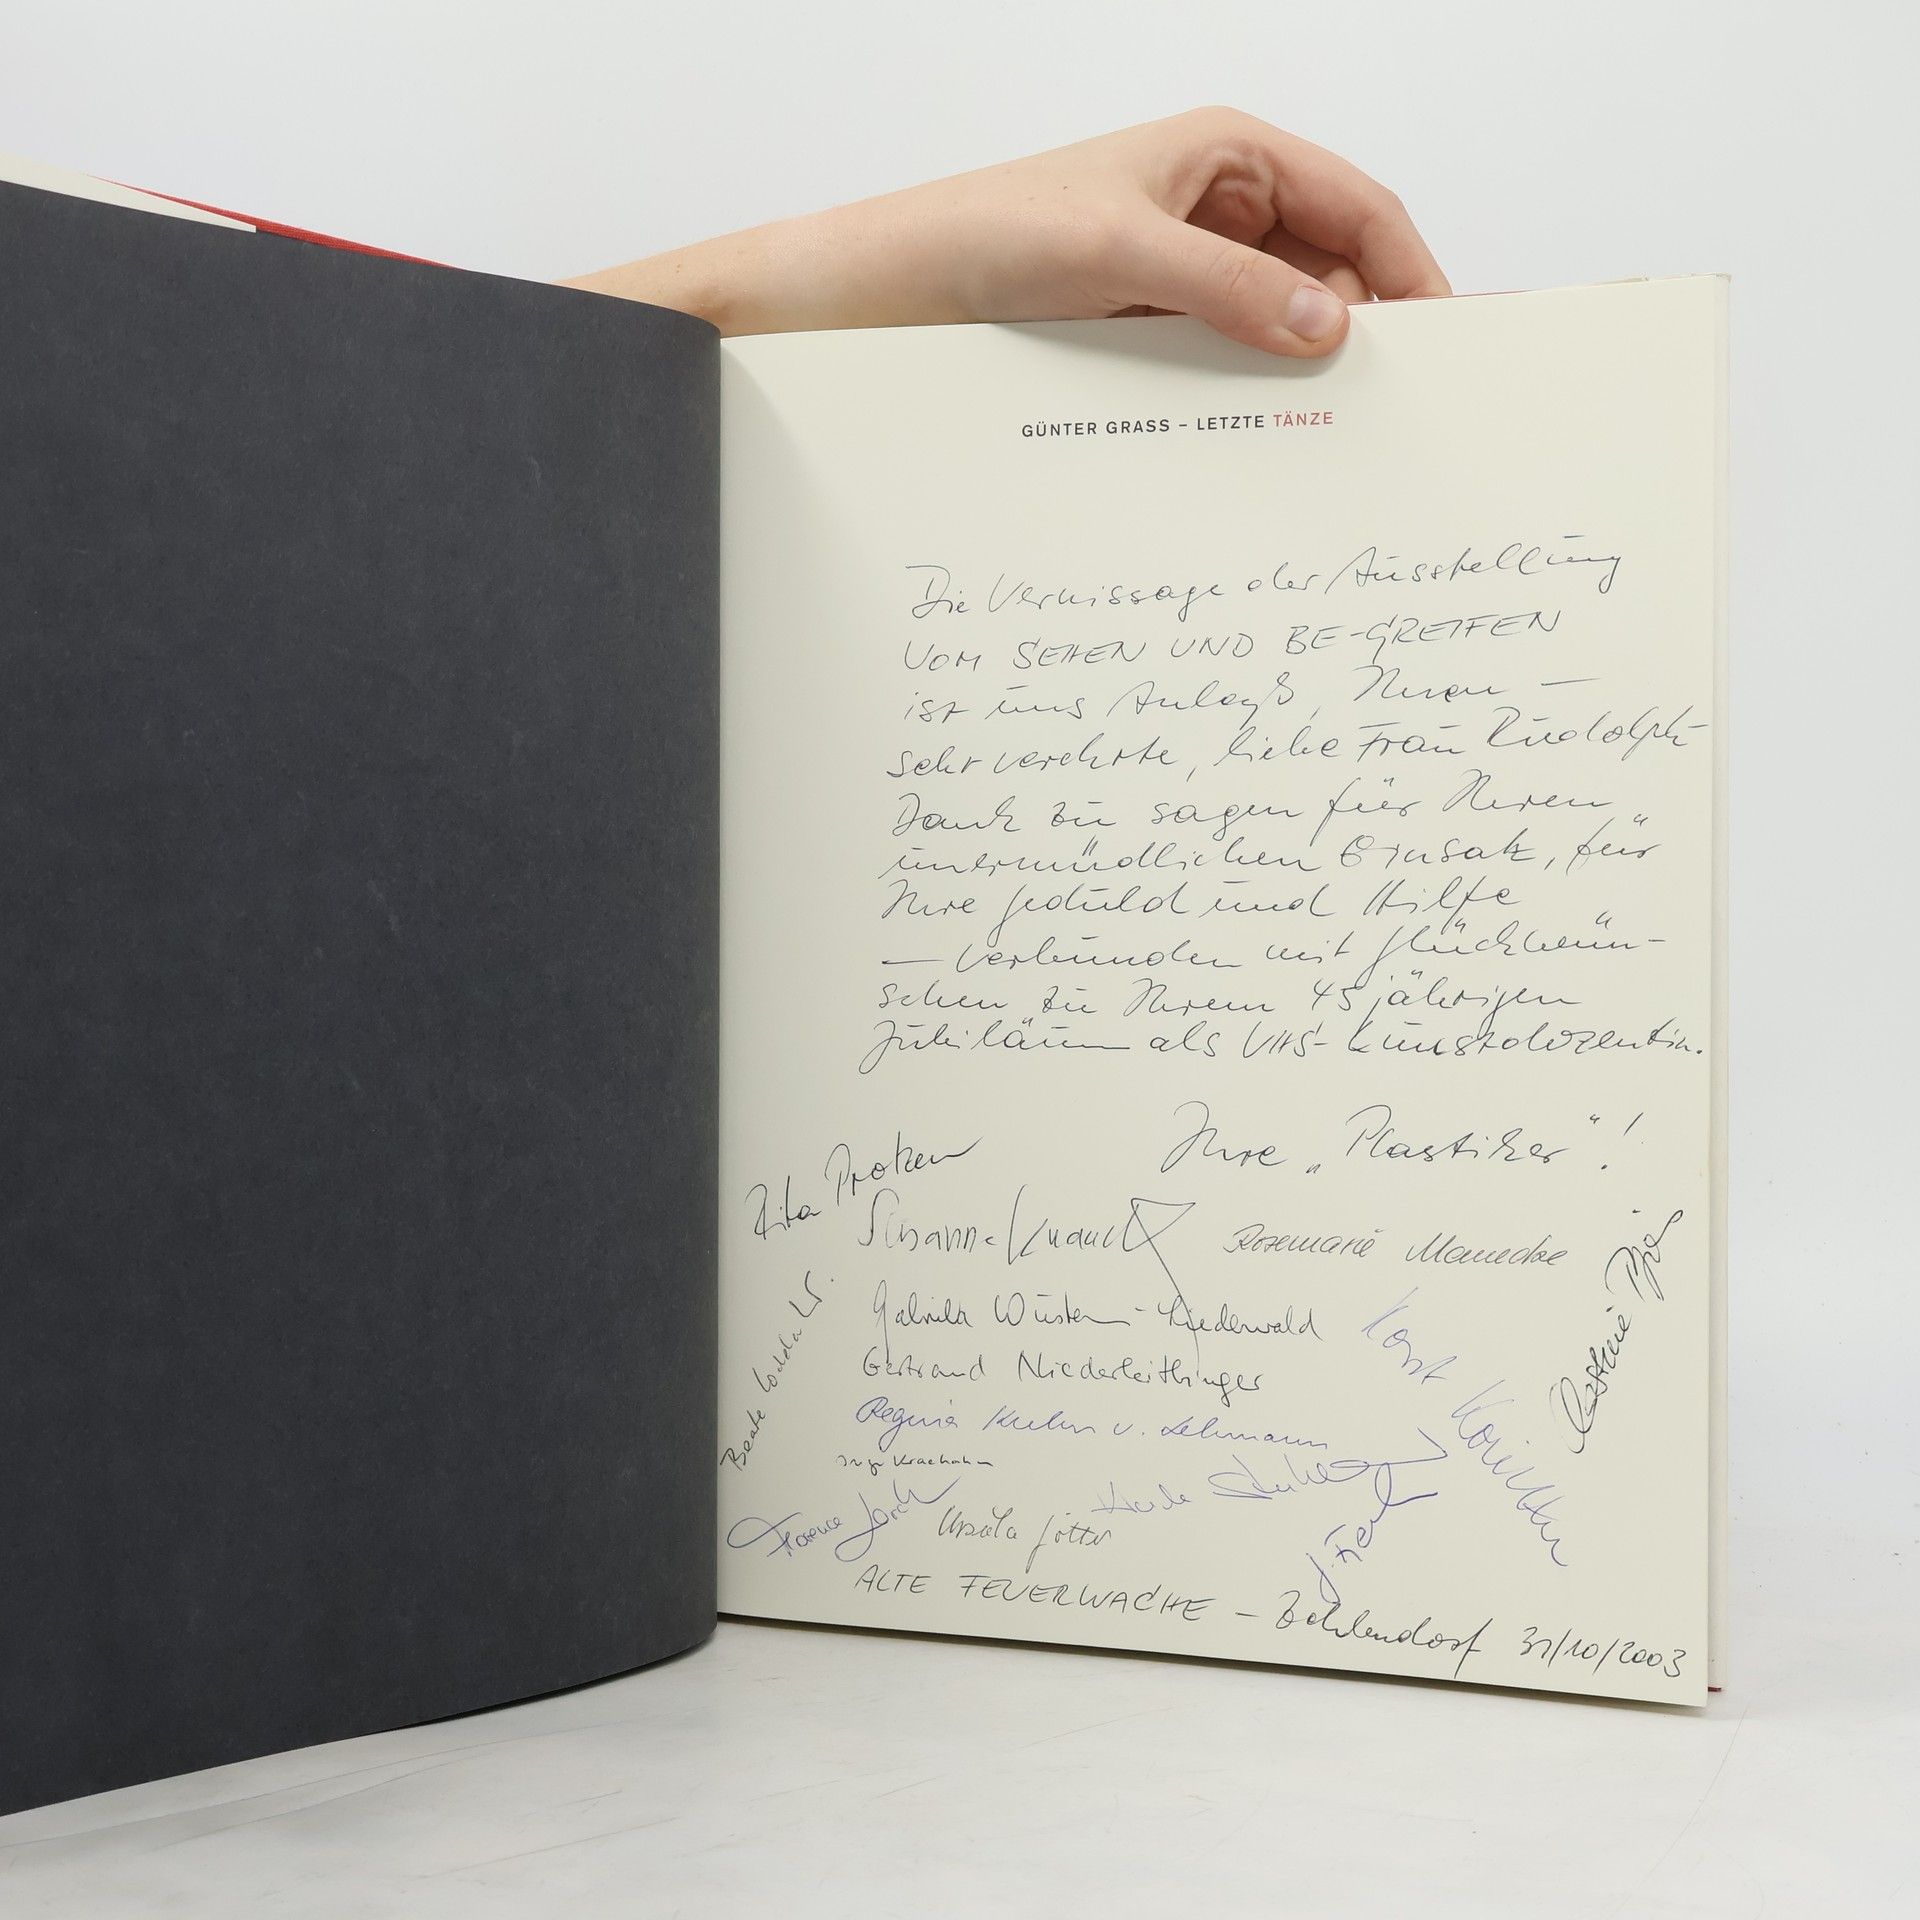 GÜNTER GRASS – LETZTE TÄNZE
Die Vernissage der Ausstellung
VOM SEHEN UND BE-GREIFEN
ist uns Anlaß, Ihnen –
sehr verehrte, liebe Frau Rudolph
Dank zu sagen für Ihren
unermüdlichen Einsatz, für
Ihre Geduld und Hilfe
– verbunden mit Glückwün-
schen zu Ihrem 45 jährigen
Jubiläum als VHS-Kunstdozentin.
Ihre „Plastiker“!
Rita Proken
Susanne Knauck
Rosemarie
Gabriela Liederwald
Gertraud Niederleithinger
Regina Kuhn v. Lehmann
Beate
Horst
Florence
Ursula Götter
ALTE FEUERWACHE – Zehlendorf 31/10/2003